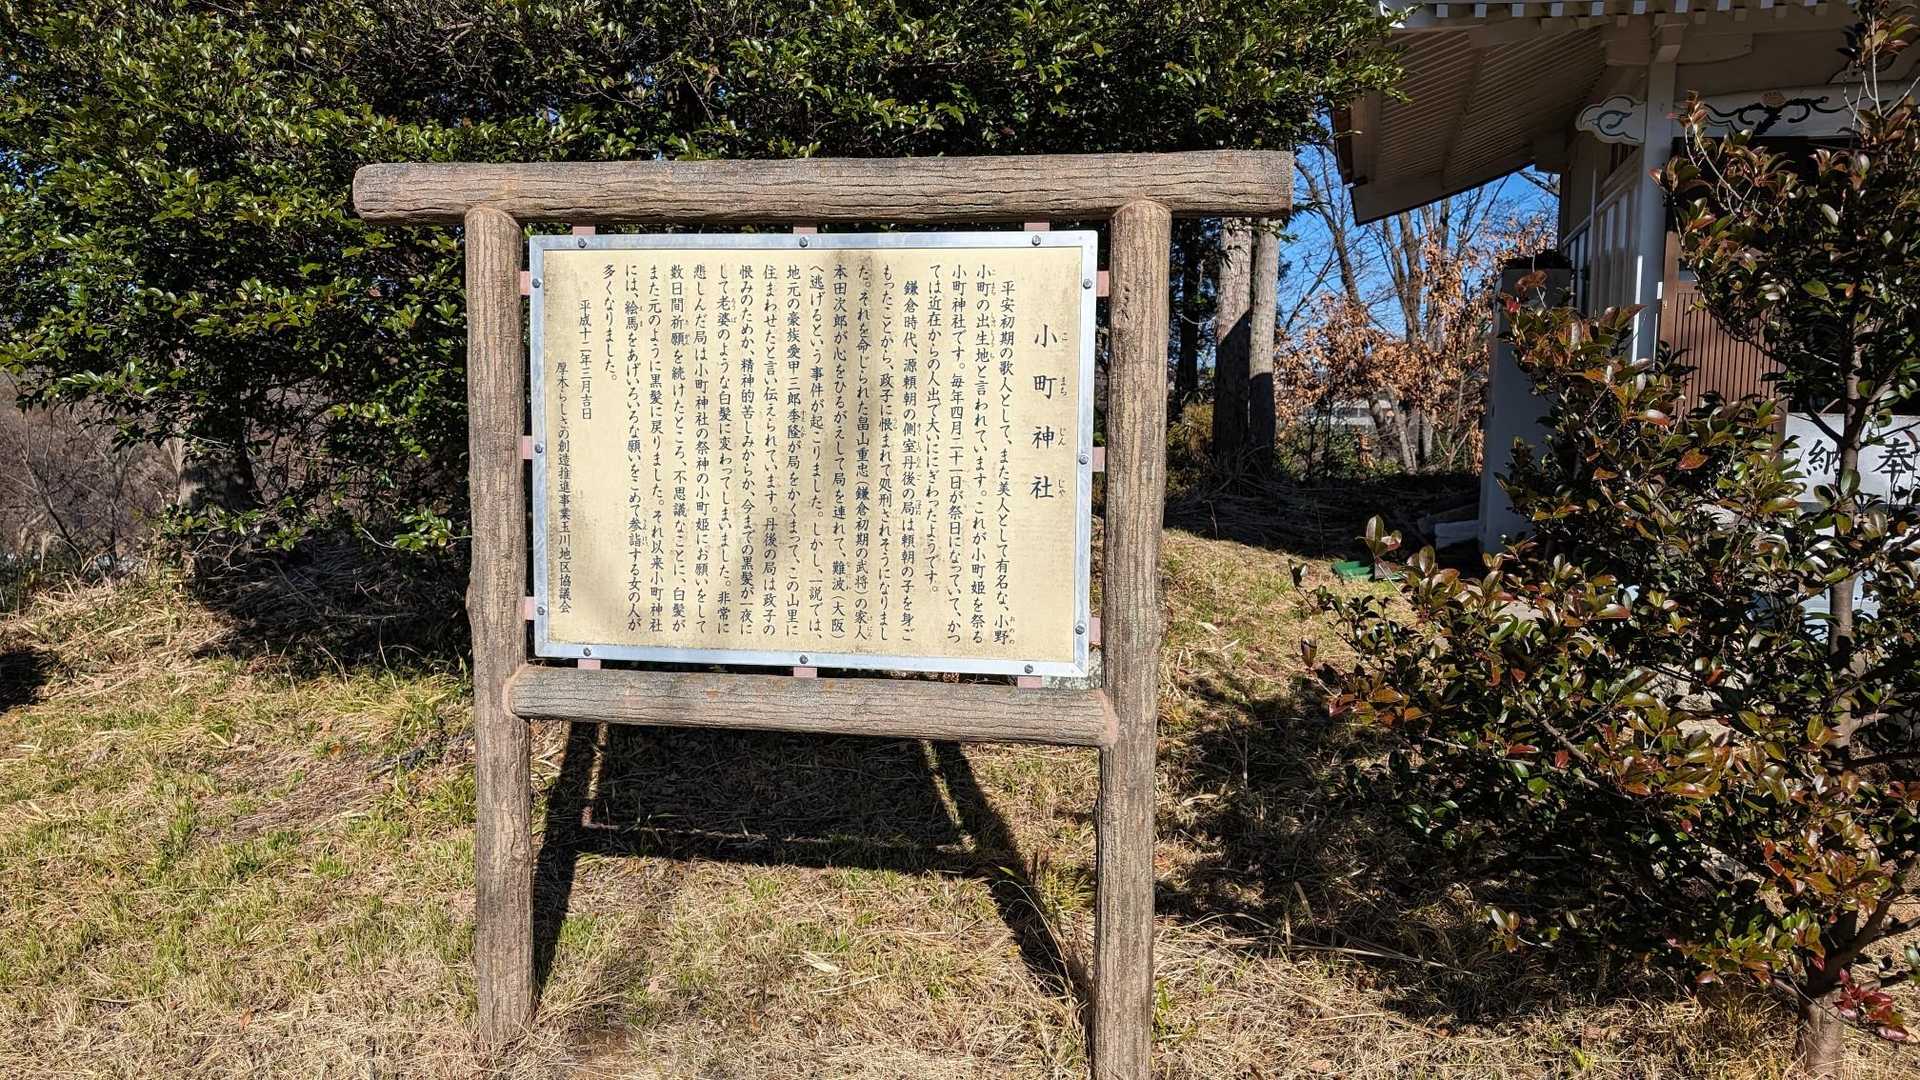 小町神社
こまちじんじゃ
平安初期の歌人として、また美人として有名な、小野
小町の出生地と言われています。これが小町姫を祭る
小町神社です。毎年四月二十一日が祭日になっていて、かつ
ては近在からの人出で大いににぎわったようです。
鎌倉時代、源頼朝の側室丹後の局は頼朝の子を身ご
もったことから、政子に恨まれて処刑されそうになりまし
た。それを命じられた畠山重忠(鎌倉初期の武将)の家人
本田次郎が心をひるがえして局を連れて、難波(大阪)
へ逃げるという事件が起こりました。しかし、一説では、
地元の豪族愛甲三郎季隆が局をかくまって、この山里に
住まわせたと言い伝えられています。丹後の局は政子の
恨みのためか、精神的苦しみからか、今までの黒髪が一夜に
して老婆のような白髪に変わってしまいました。非常に
悲しんだ局は小町神社の祭神の小町姫にお願いをして
数日間祈願を続けたところ、不思議なことに、白髪が
また元のように黒髪に戻りました。それ以来小町神社
には、絵馬をあげいろいろな願いをこめて参詣する女の人が
多くなりました。
平成十二年三月吉日
厚木らしさの創造推進事業玉川地区協議会
奉
納